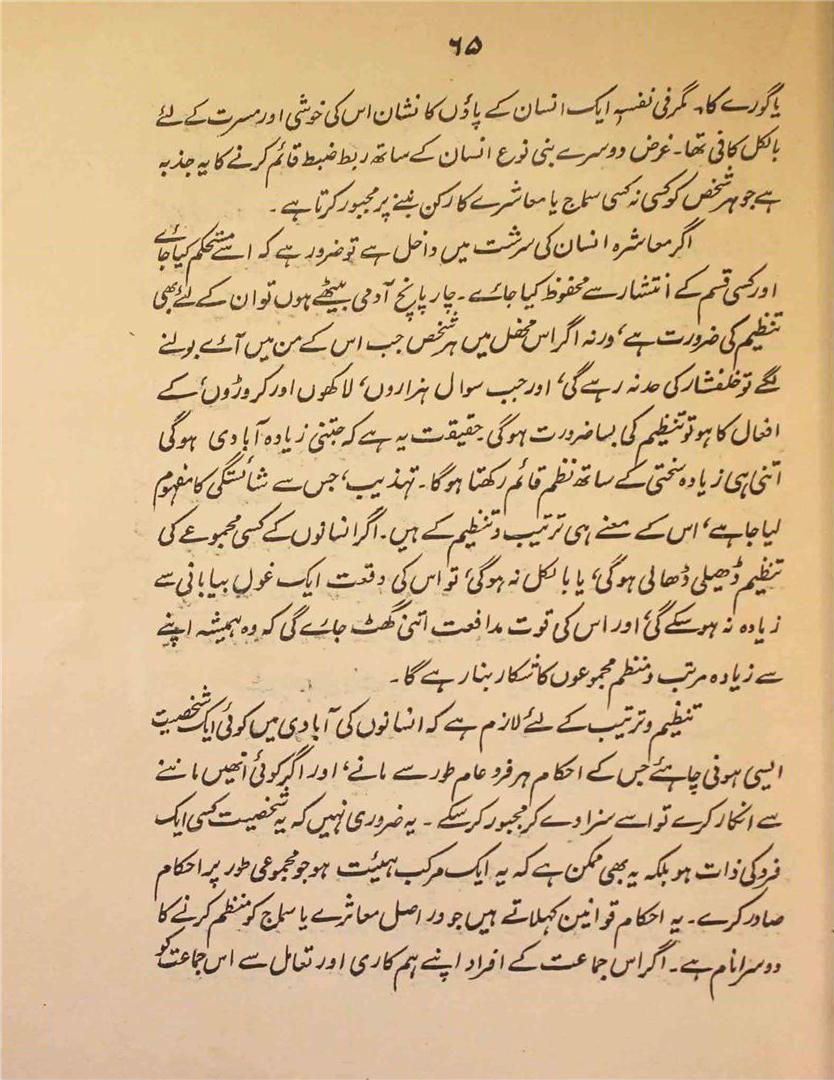 ۶۵
یا گورے کا، مگر فی نفسہٖ ایک انسان کے پاؤں کا نشان اس کی خوشی اور مسرت کے لئے
بالکل کافی تھا۔ غرض دوسرے بنی نوع انسان کے ساتھ ربط ضبط قائم کرنے کا یہ جذبہ
ہے جو ہر شخص کو کسی نہ کسی سماج یا معاشرے کا رکن بننے پر مجبور کرتا ہے۔
اگر معاشرہ انسان کی سرشت میں داخل ہے تو ضرور ہے کہ اسے مستحکم کیا جائے
اور کسی قسم کے انتشار سے محفوظ کیا جائے۔ چار پانچ آدمی بیٹھے ہوں تو ان کے لئے بھی
تنظیم کی ضرورت ہے، ورنہ اگر اس محفل میں ہر شخص جب اس کے من میں آئے بولنے
لگے تو خلفشار کی حد نہ رہے گی، اور جب سوال ہزاروں، لاکھوں اور کروڑوں، کے
افعال کا ہو تو تنظیم کی بسا ضرورت ہوگی۔ حقیقت یہ ہے کہ جتنی زیادہ آبادی ہوگی
اتنی ہی زیادہ سختی کے ساتھ نظم قائم رکھتا ہوگا۔ تہذیب، جس سے شائستگی کا مفہوم
لیا جاہے، اس کے معنے ہی ترتیب و تنظیم کے ہیں۔ اگر انسانوں کے کسی مجموعے کی
تنظیم ڈھیلی ڈھالی ہوگی، یا بالکل نہ ہوگی، تو اس کی وقعت ایک غول بیابانی سے
زیادہ نہ ہو سکے گی، اور اس کی قوت مدافعت اتنی گھٹ جائے گی کہ وہ ہمیشہ اپنے
سے زیادہ مرتب و منظم مجموعوں کا شکار بنا رہے گا۔
تنظیم و ترتیب کے لئے لازم ہے کہ انسانوں کی آبادی میں کوئی ایک شخصیت
ایسی ہونی چاہئے جس کے احکام ہر فرد عام طور سے مانے، اور اگر کوئی انھیں ماننے
سے انکار کرے تو اسے سزا دے کر مجبور کر سکے۔ یہ ضروری نہیں کہ یہ شخصیت کسی ایک
فرد کی ذات ہو بلکہ یہ بھی ممکن ہے کہ یہ ایک مرکب ہیئت ہو جو مجموعی طور پر احکام
صادر کرے۔ یہ احکام قوانین کہلاتے ہیں جو در اصل معاشرے یا سماج کو منظم کرنے کا
دوسرا نام ہے۔ اگر اس جماعت کے افراد اپنے ہم کاری اور تعامل سے اس جماعت کو